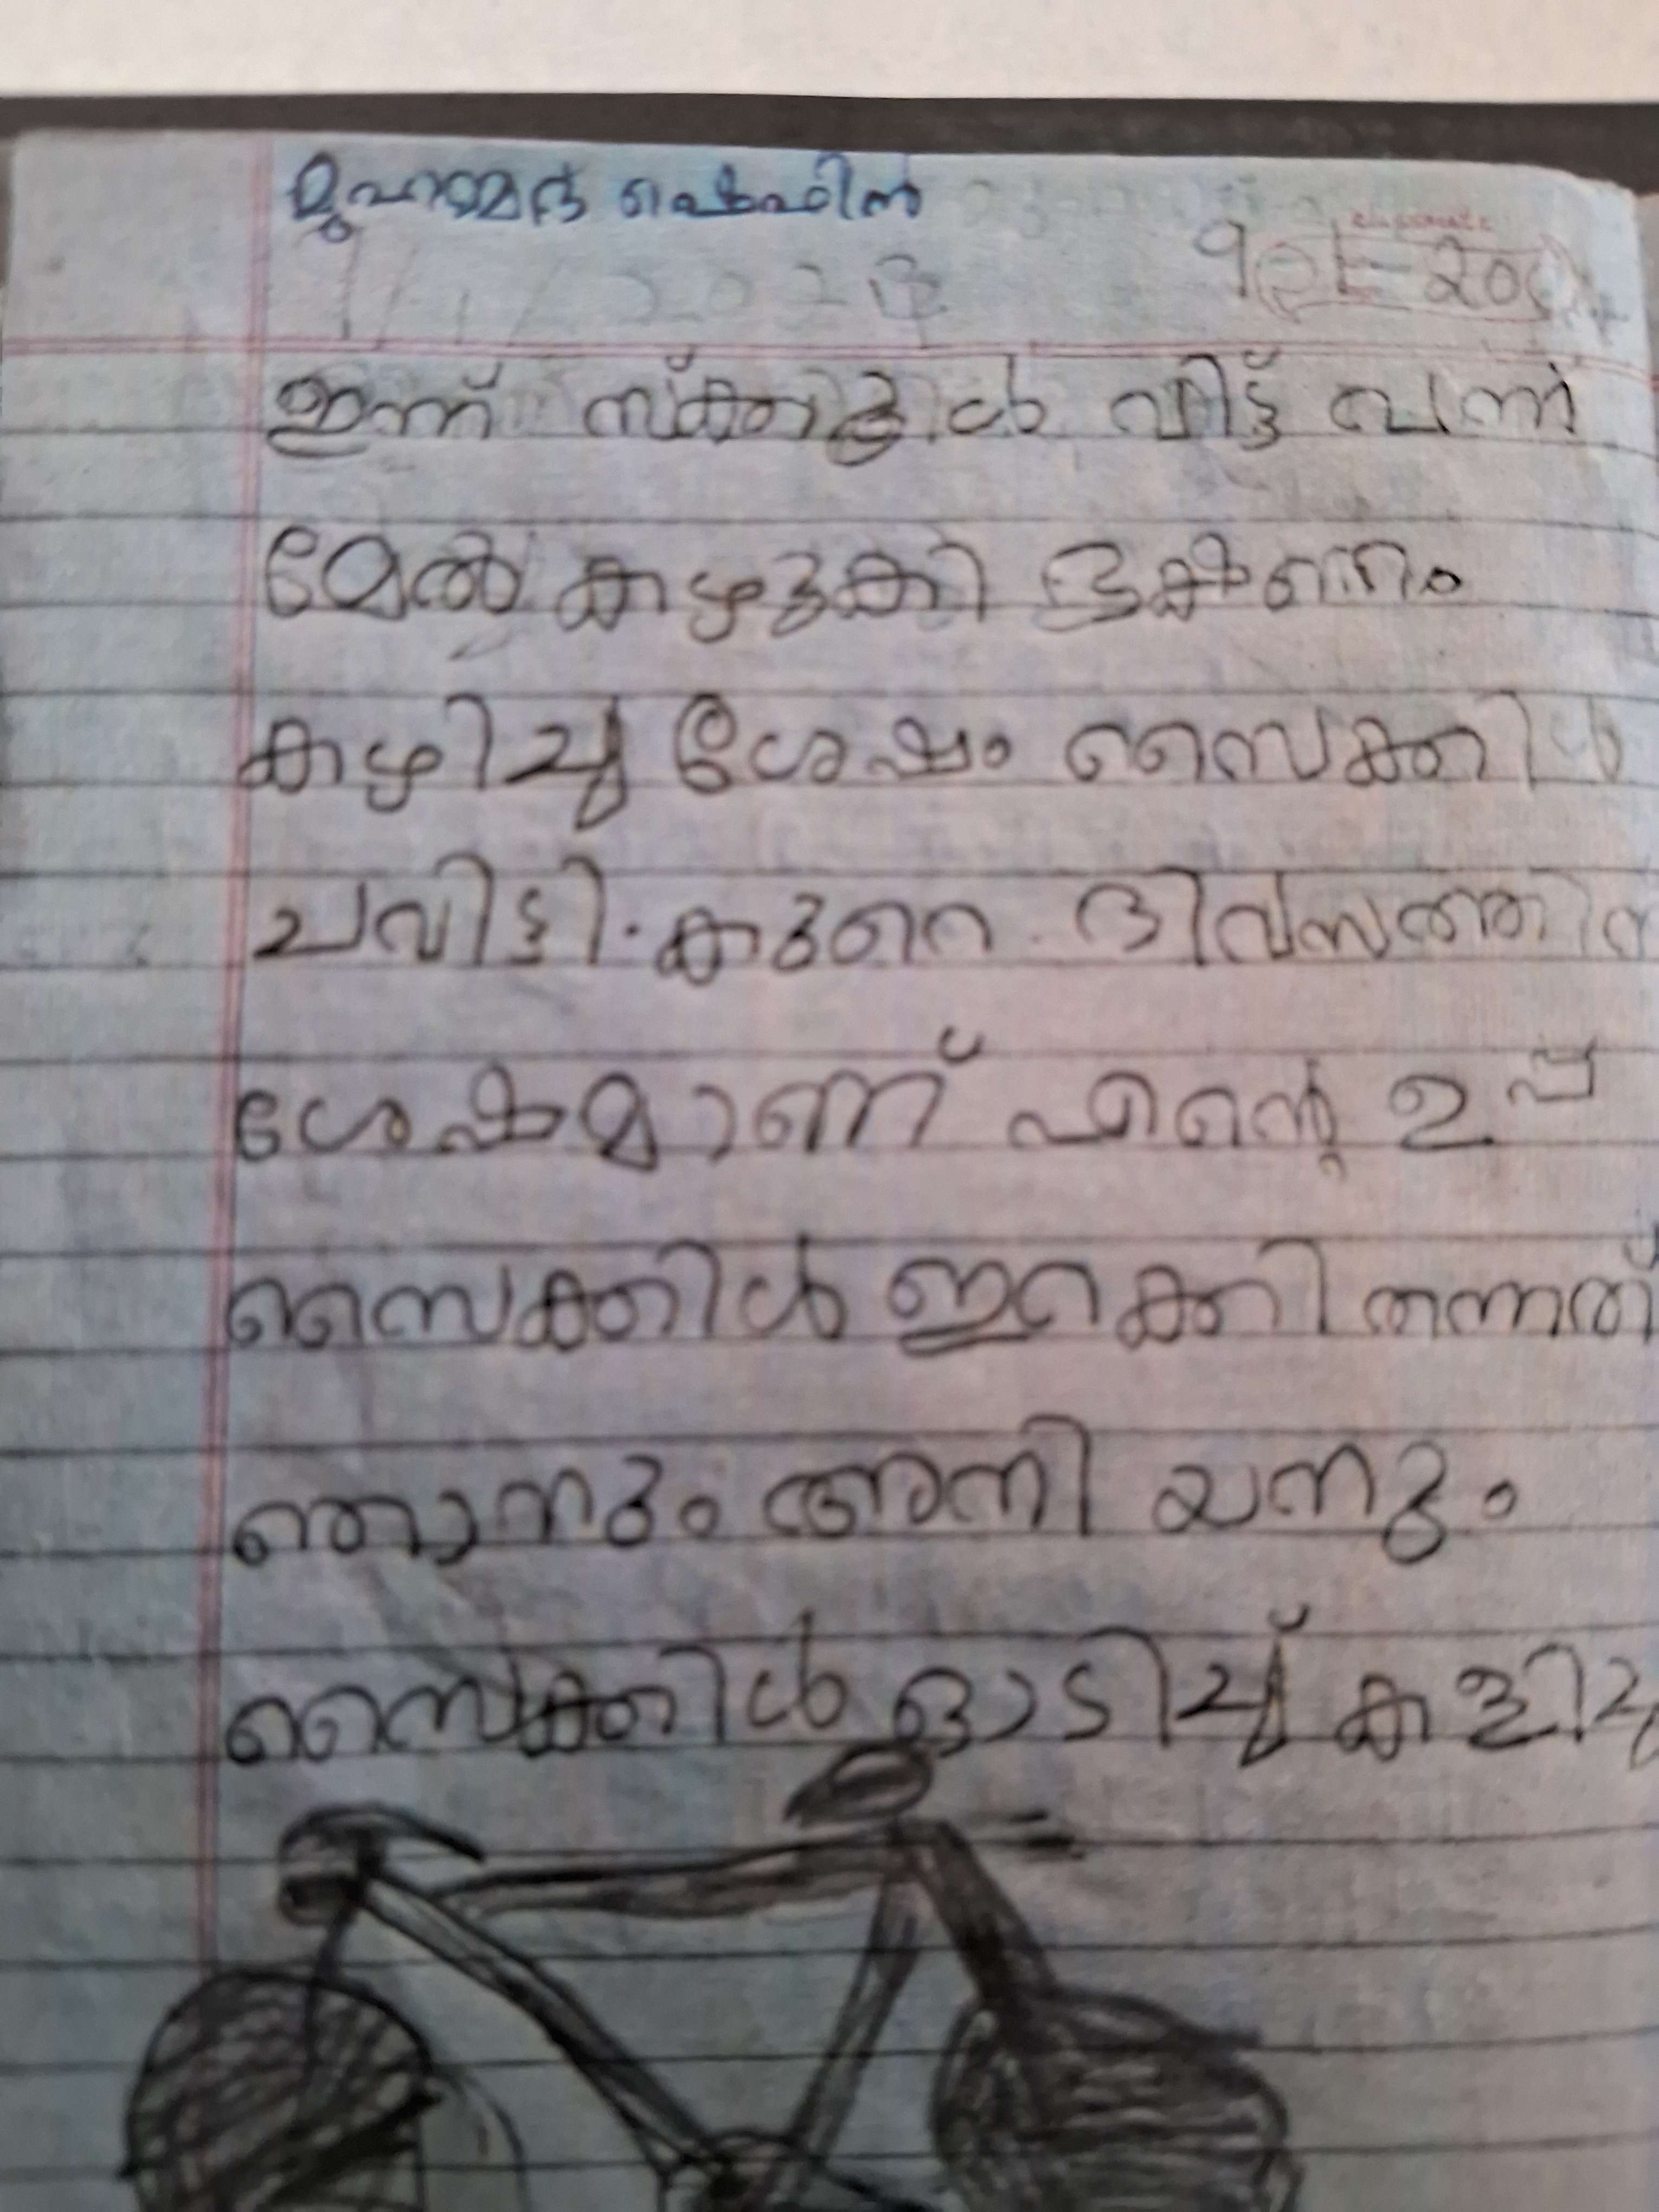 മുഹമ്മദ്
ഇന്ന് സ്ക്കൂൾ വിട്ട് വന്ന്
മേൽ കഴുകി ഭക്ഷണം
കഴിച്ചു ശേഷം സൈക്കിൾ
ചവിട്ടി. കുറെ ദിവസത്തിന
ശേഷമാണ് എന്റെ ഉപ്പ
സൈക്കിൾ ഇറക്കി തന്നത്
ഞാനും അനിയനും
സൈക്കിൾ ഓടിച്ച് കളിച്ചു